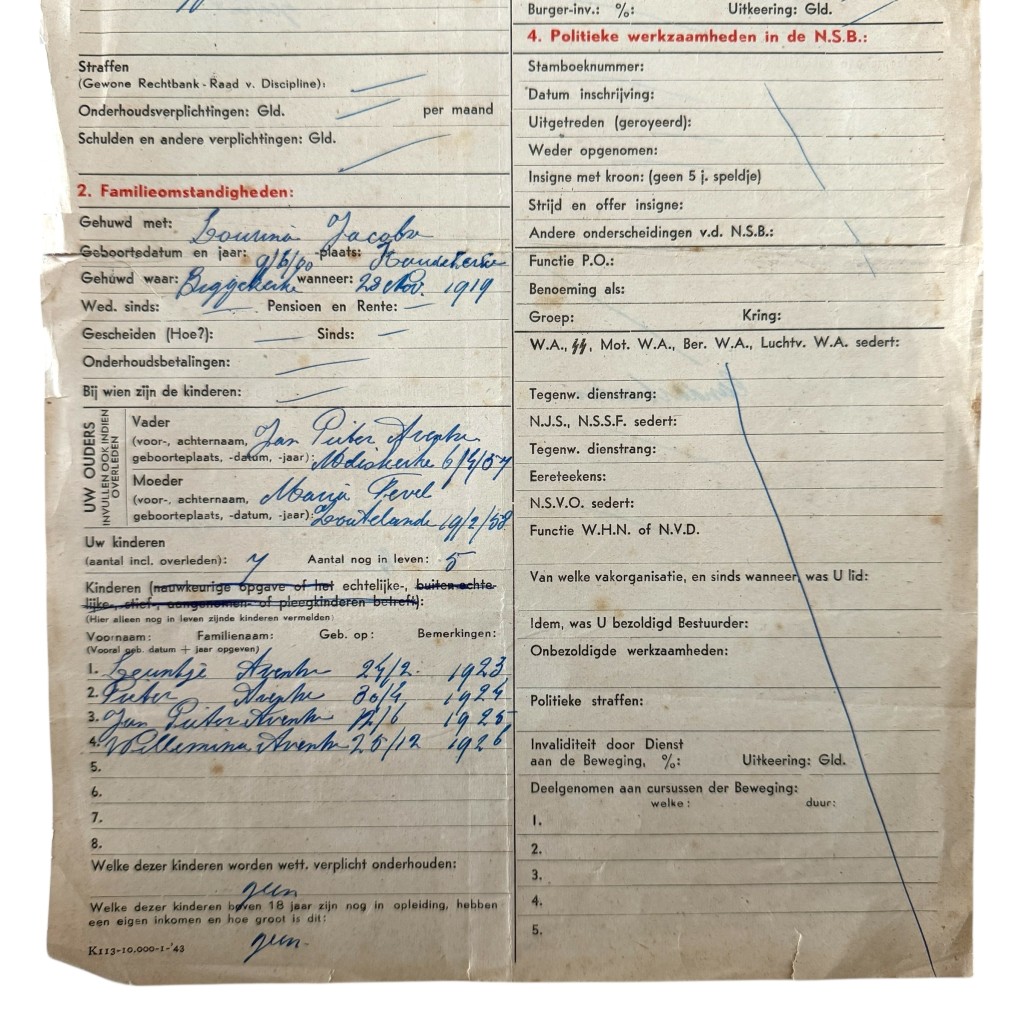 Straffen
(Gewone Rechtbank - Raad v. Discipline):
Onderhoudsverplichtingen: Gld. per maand
Schulden en andere verplichtingen: Gld.
2. Familieomstandigheden:
Gehuwd met: Lourina Jacoba
Geboortedatum en jaar: 9/6/00 -plaats: Koudekerke
Gehuwd waar: Biggekerke wanneer: 28 Nov. 1919
Wed. sinds: — Pensioen en Rente: —
Gescheiden (Hoe?): — Sinds: —
Onderhoudsbetalingen: —
Bij wien zijn de kinderen: —
UW OUDERS
INVULLEN OOK INDIEN
OVERLEDEN
Vader
(voor-, achternaam, Jan Pieter
geboorteplaats, -datum, -jaar): 6/4/57
Moeder
(voor-, achternaam, Maria
geboorteplaats, -datum, -jaar): Zoutelande 19/2/58
Uw kinderen
(aantal incl. overleden): 7 Aantal nog in leven: 5
Kinderen (nauwkeurige opgave of het echtelijke-, buiten-echte-
lijke-, stief-, aangenomen- of pleegkinderen betreft):
(Hier alleen nog in leven zijnde kinderen vermelden)
Voornaam: Familienaam: Geb. op: Bemerkingen:
(Vooral geb. datum + jaar opgeven)
1. Leuntje 24/2 1923
2. Pieter 30/4 1924
3. Jan Pieter 12/6 1925
4. Willemina 25/12 1926
5.
6.
7.
8.
Welke dezer kinderen worden wett. verplicht onderhouden:
geen
Welke dezer kinderen boven 18 jaar zijn nog in opleiding, hebben
een eigen inkomen en hoe groot is dit:
geen
K113-10.000-1-'43
Burger-inv.: %: Uitkeering: Gld.
4. Politieke werkzaamheden in de N.S.B.:
Stamboeknummer:
Datum inschrijving:
Uitgetreden (geroyeerd):
Weder opgenomen:
Insigne met kroon: (geen 5 j. speldje)
Strijd en offer insigne:
Andere onderscheidingen v.d. N.S.B.:
Functie P.O.:
Benoeming als:
Groep: Kring:
W.A., ᛋᛋ, Mot. W.A., Ber. W.A., Luchtv. W.A. sedert:
Tegenw. dienstrang:
N.J.S., N.S.S.F. sedert:
Tegenw. dienstrang:
Eereteekens:
N.S.V.O. sedert:
Functie W.H.N. of N.V.D.
Van welke vakorganisatie, en sinds wanneer was U lid:
Idem, was U bezoldigd Bestuurder:
Onbezoldigde werkzaamheden:
Politieke straffen:
Invaliditeit door Dienst
aan de Beweging, %: Uitkeering: Gld.
Deelgenomen aan cursussen der Beweging:
welke: duur:
1.
2.
3.
4.
5.